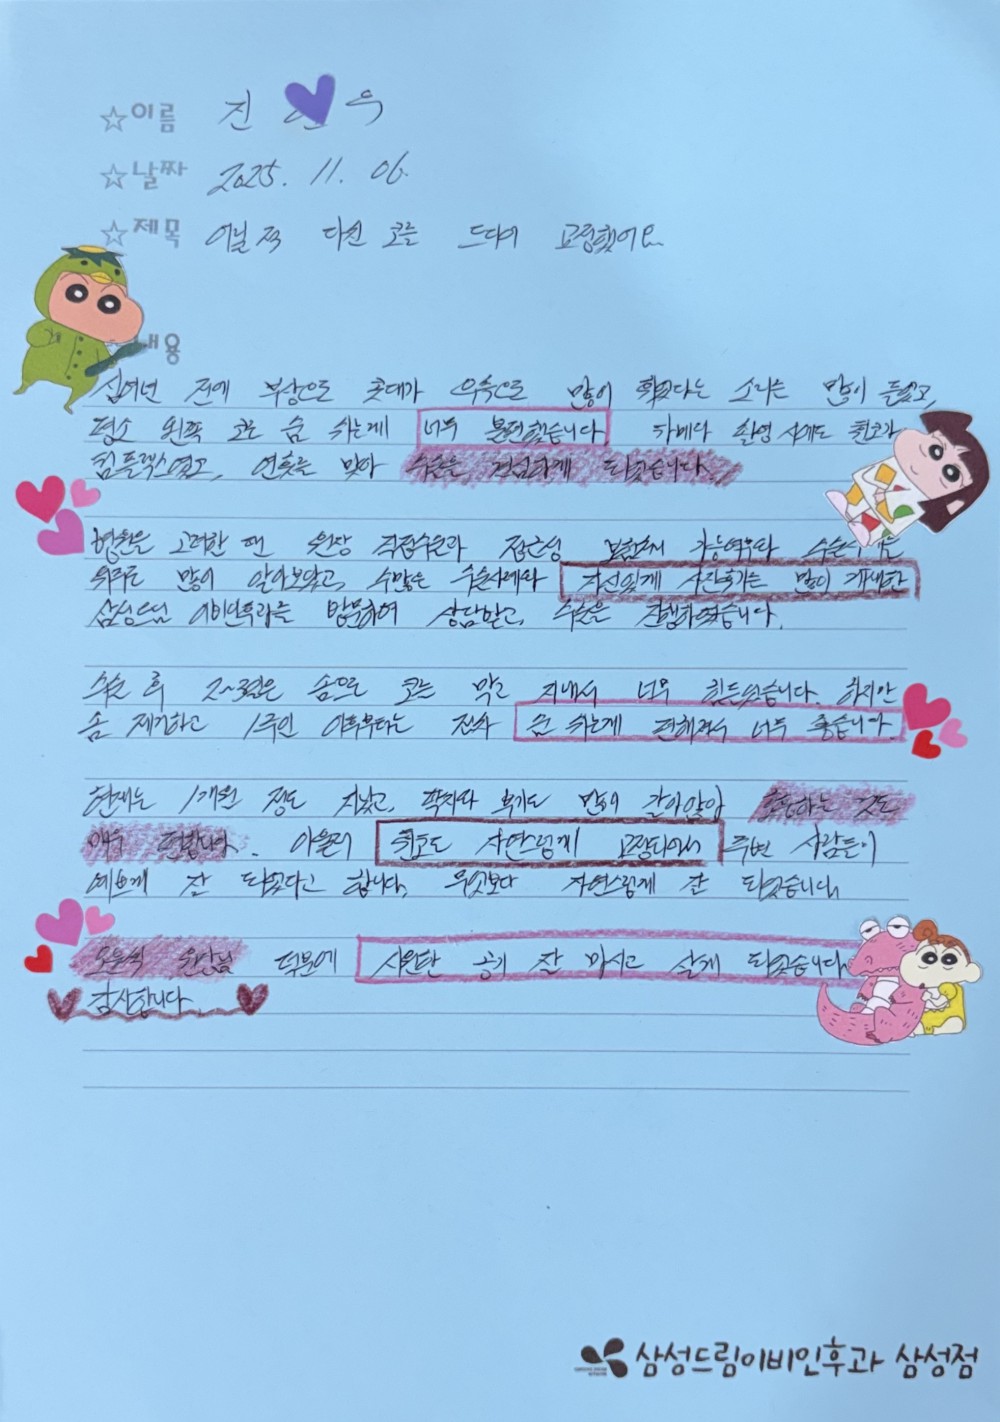 ☆이름 진 우
☆날짜 2025. 11. 06.
☆제목 어릴적 다친 코를 드디어 교정했어요.
내용
십여년 전에 부상으로 콧대가 우측으로 많이 휘었다는 소리는 많이 들었고,
평소 왼쪽 코로 숨 쉬는게 너무 불편했습니다 카메라 촬영 시에도 휜코가
컴플렉스였고, 연휴를 맞아 수술을 결심하게 되었습니다.
병원을 고려할 땐 원장 직접수술과 접근성 보험처리 가능여부와 수술
위주로 많이 알아보았고, 수많은 수술사례와 자신있게 사진후기는 많이 게재한
삼성드림 이비인후과를 방문하여 상담받고, 수술을 진행하였습니다.
수술 후 2~3일은 솜으로 코를 막고 지내서 너무 힘들었습니다. 하지만
솜 제거하고 1주일 이후부터는 점차 숨 쉬는게 편해져서 너무 좋습니다.
현재는 1개월 정도 지났고, 통증과 붓기도 많이 가라앉아 호흡하는 것도
매우 편합니다. 아울러 휜코도 자연스럽게 교정되어서 주변 사람들이
예쁘게 잘 되었다고 합니다. 무엇보다 자연스럽게 잘 되었습니다.
원장님 덕분에 시원한 공기 잘 마시고 살게 되었습니다.
감사합니다.
삼성드림이비인후과 삼성점